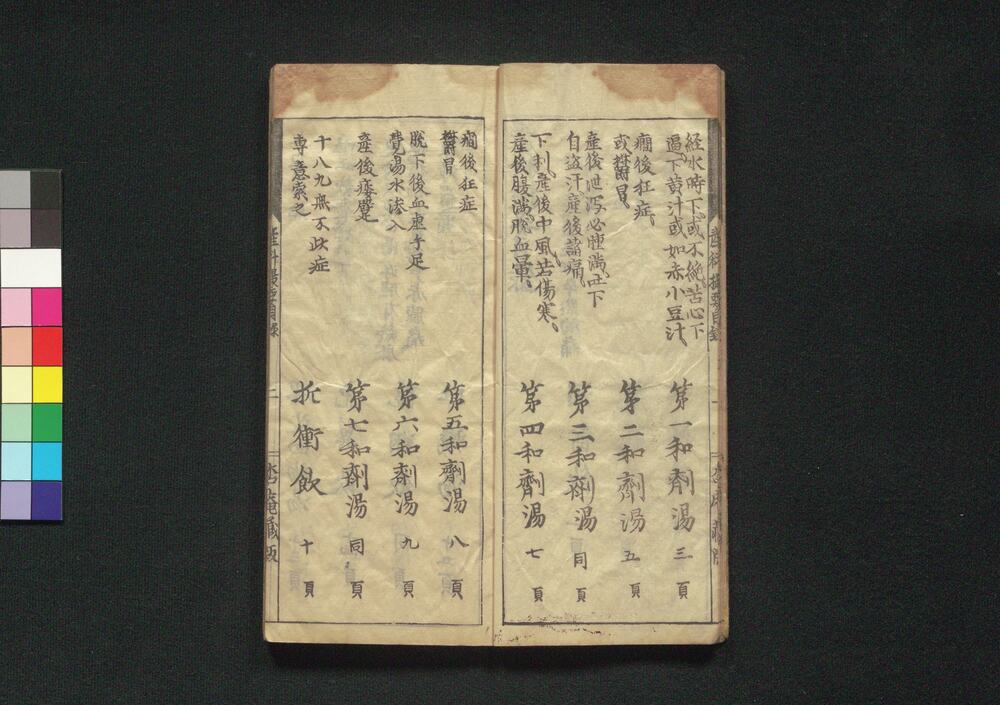 経水時下或不絶苦心下
過下黄汁或如赤小豆汁
第一和劑湯 三頁
癇後狂症
或欝冒
第二和劑湯 五頁
産後泄瀉必腫満吐下
自盗汗産後諸痛
第三和劑湯 同頁
下利産後中風苦傷寒
産後腹満脱血暈
第四和劑湯 七頁
癇後狂症
欝冒
第五和劑湯 八頁
脱下後血虚手足
覺湯水滲入
第六和劑湯 九頁
産後痿躄
第七和劑湯 同頁
十八九無不此症
専意索之
折衝飲 十頁
目録
二
杏庵藏版